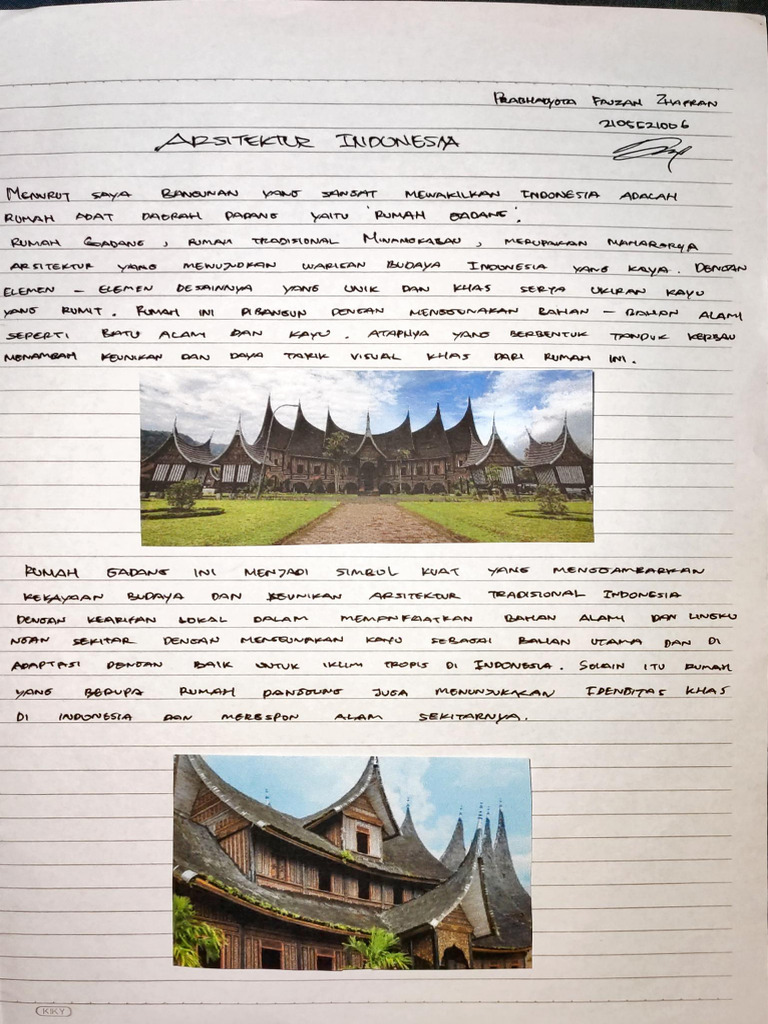 PRABHADYOTA FAUZAN ZHAFRAN
2105521006
ARSITEKTUR INDONESIA
MENURUT SAYA BANGUNAN YANG SANGAT MEWAKILKAN INDONESIA ADALAH
RUMAH ADAT DAERAH PADANG YAITU 'RUMAH GADANG'.
RUMAH GADANG, RUMAH TRADISIONAL MINANGKABAU, MERUPAKAN MAHAKARYA
ARSITEKTUR YANG MEWUJUDKAN WARISAN BUDAYA INDONESIA YANG KAYA. DENGAN
ELEMEN - ELEMEN DESAINNYA YANG UNIK DAN KHAS SERTA UKIRAN KAYU
YANG RUMIT. RUMAH INI DIBANGUN DENGAN MENGGUNAKAN BAHAN - BAHAN ALAMI
SEPERTI BATU ALAM DAN KAYU. ATAPNYA YANG BERBENTUK TANDUK KERBAU
MENAMBAH KEUNIKAN DAN DAYA TARIK VISUAL KHAS DARI RUMAH INI.
RUMAH GADANG INI MENJADI SIMBUL KUAT YANG MENGGAMBARKAN
KEKAYAAN BUDAYA DAN KEUNIKAN ARSITEKTUR TRADISIONAL INDONESIA
DENGAN KEARIFAN LOKAL DALAM MEMANFAATKAN BAHAN ALAMI DAN LINGKU
NGAN SEKITAR DENGAN MENGGUNAKAN KAYU SEBAGAI BAHAN UTAMA DAN DI
ADAPTASI DENGAN BAIK UNTUK IKLIM TROPIS DI INDONESIA. SELAIN ITU RUMAH
YANG BERUPA RUMAH PANGGUNG JUGA MENUNJUKAKAN IDENDITAS KHAS
DI INDONESIA DAN MERESPON ALAM SEKITARNYA.
KIKY